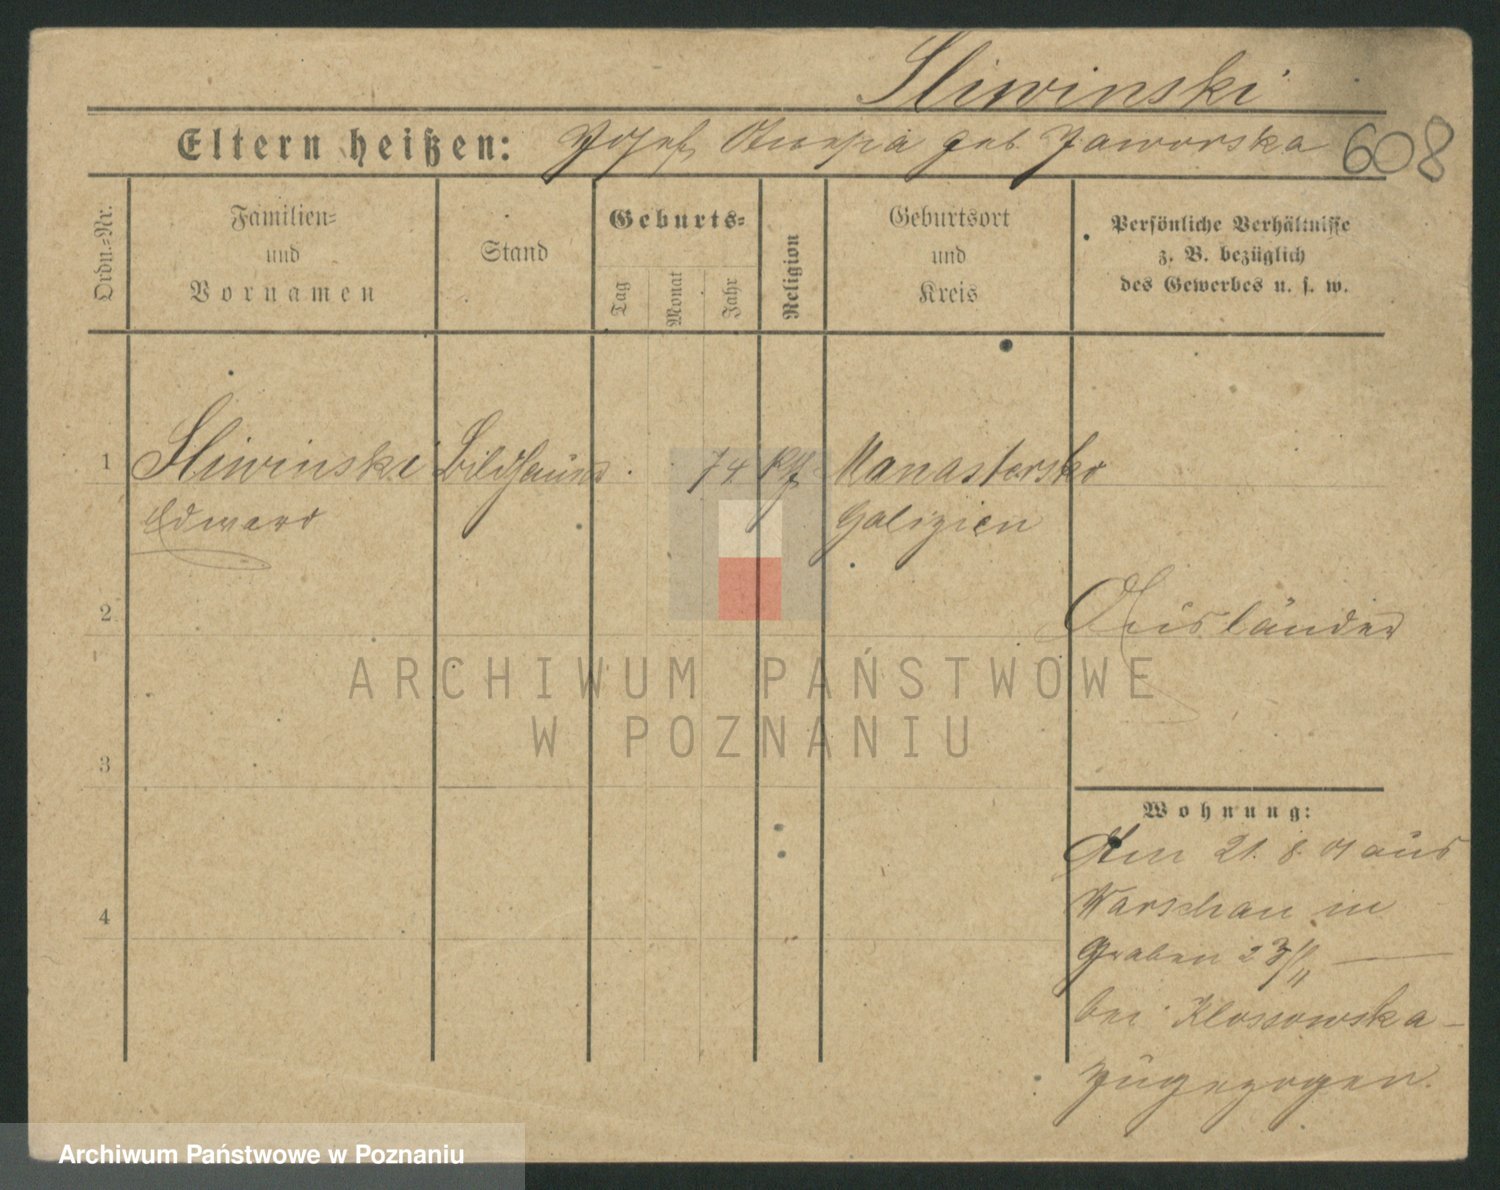 Sliwinski
Eltern heißen: Josef, geb. Jaworska 608
Ordn.=Nr.
Familien=
und
Vornamen
Stand
Geburts=
Tag
Monat
Jahr
Religion
Geburtsort
und
Kreis
Persönliche Verhältnisse
z. B. bezüglich
des Gewerbes u. s. w.
1 Sliwinski Bildhauer 74 Manastersko
Edward Galizien
2 Ausländer
3
4
Wohnung:
Am 21. 8. 01 aus
Warschau in
Graben 23/11
bei Klossowska
zugezogen.
ARCHIWUM PAŃSTWOWE
W POZNANIU
Archiwum Państwowe w Poznaniu